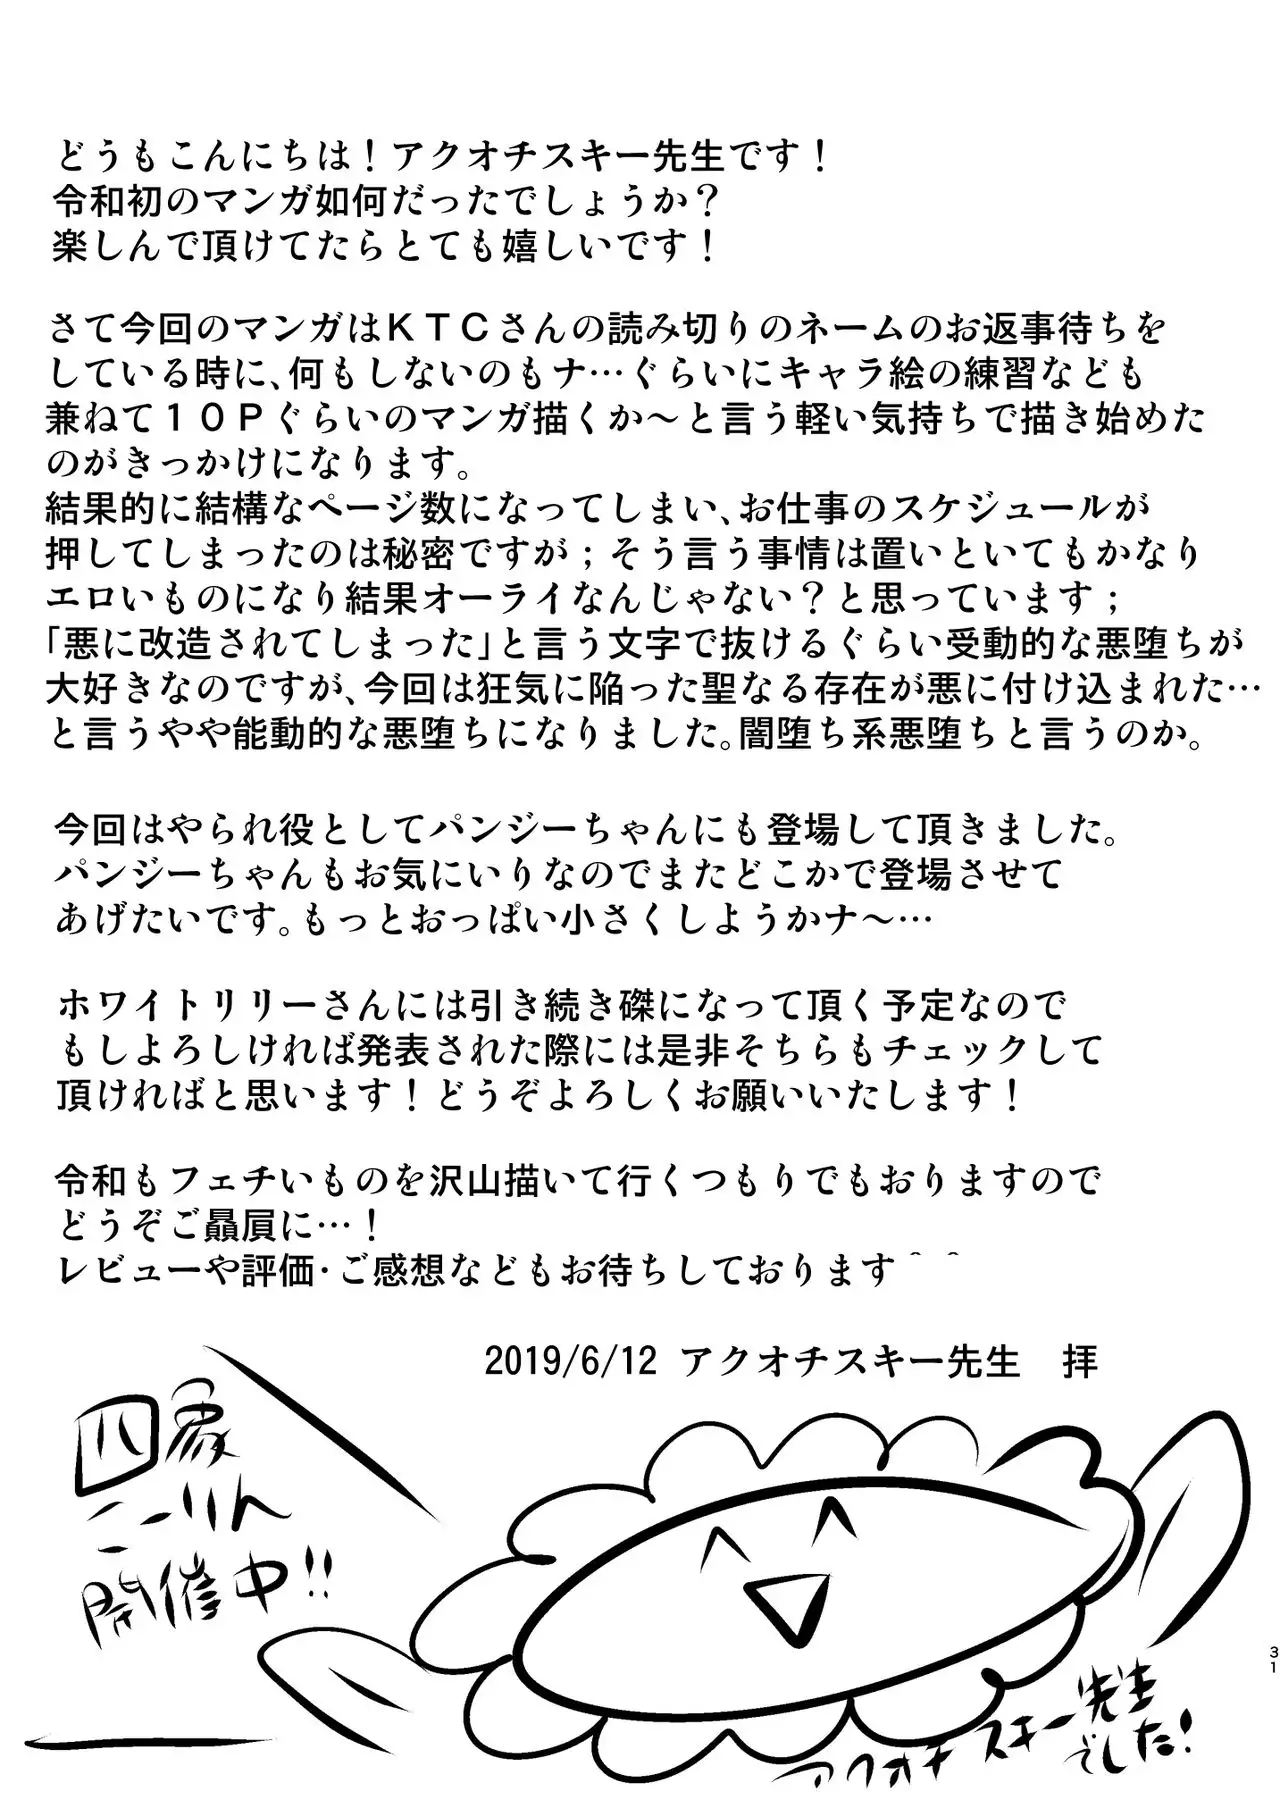 どうもこんにちは！アクオチスキー先生です！
令和初のマンガ如何だったでしょうか？
楽しんで頂けてたらとても嬉しいです！
さて今回のマンガはＫＴＣさんの読み切りのネームのお返事待ちを
している時に、何もしないのもナ…ぐらいにキャラ絵の練習なども
兼ねて１０Ｐぐらいのマンガ描くか～と言う軽い気持ちで描き始めた
のがきっかけになります。
結果的に結構なページ数になってしまい、お仕事のスケジュールが
押してしまったのは秘密ですが；そう言う事情は置いといてもかなり
エロいものになり結果オーライなんじゃない？と思っています；
「悪に改造されてしまった」と言う文字で抜けるぐらい受動的な悪堕ちが
大好きなのですが、今回は狂気に陥った聖なる存在が悪に付け込まれた…
と言うやや能動的な悪堕ちになりました。闇堕ち系悪堕ちと言うのか。
今回はやられ役としてパンジーちゃんにも登場して頂きました。
パンジーちゃんもお気にいりなのでまたどこかで登場させて
あげたいです。もっとおっぱい小さくしようかナ～…
ホワイトリリーさんには引き続き磔になって頂く予定なので
もしよろしければ発表された際には是非そちらもチェックして
頂ければと思います！どうぞよろしくお願いいたします！
令和もフェチいものを沢山描いて行くつもりでもおりますので
どうぞご贔屓に…！
レビューや評価・ご感想などもお待ちしております＾＾
2019/6/12 アクオチスキー先生　拝
四象
こーりん
開催中!!
アクオチスキー先生
でした!
31